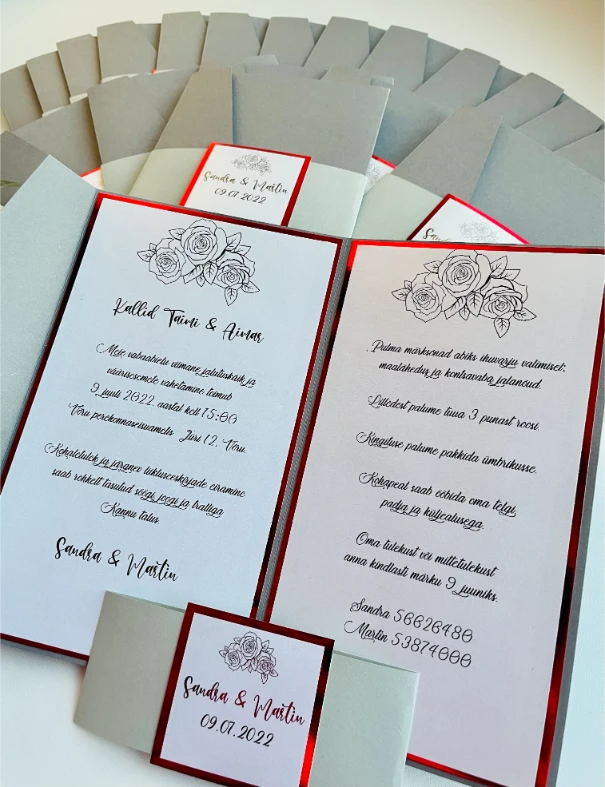 Sandra & Martin
09.07.2022
Kallid Taimi & Aimar
Meie vabaabielu viimane jalutuskäik ja
väärisesemete vahetamine toimub
9 juuli 2022. aastal kell 15:00
Võru perekonnaseisuametis Jüri 12, Võru.
Kohaletulek ja järgnev liikluseeskirjade eiramine
saab rohkelt tasutud söögi, joogi ja tralliga
Kannu talus
Sandra & Martin
Pulma märksõnad abiks ihuvarju valimisel:
maalähedus ja kontsavaba jalanõud.
Lilledest palume tuua 3 punast roosi.
Kingituse palume pakkida ümbrikusse.
Kohapeal saab ööbida oma telgi,
padja ja küljealusega.
Oma tulekust või mittetulekust
anna kindlasti märku 9 juuniks.
Sandra 56626480
Martin 53874000
Sandra & Martin
09.07.2022